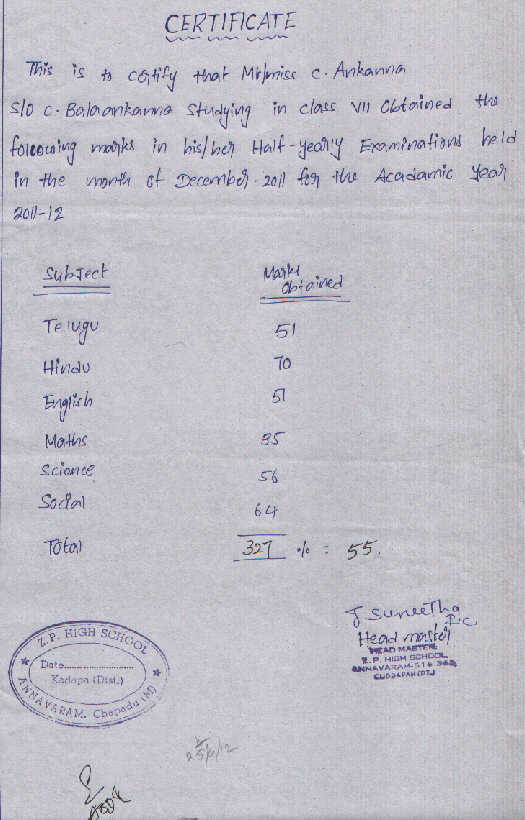 CERTIFICATE
This is to certify that Mr/miss C. Ankanna
S/O C. Balaankanna Studying in class VII Obtained the
following marks in his/her Half-yearly Examinations held
in the month of December-2011 for the Acadamic Year
2011-12
Subject Marks Obtained
Telugu 51
Hindu 70
English 51
Maths 35
Science 56
Social 64
Total 327 % = 55.
J Suneetha
Head master
HEAD MASTER
Z. P. HIGH SCHOOL
ANNAVARAM-516
CUDDAPAH (DT.)
Z.P. HIGH SCHOOL
Date
Kadapa (Dist.)
ANNAVARAM, Chapadu (M)